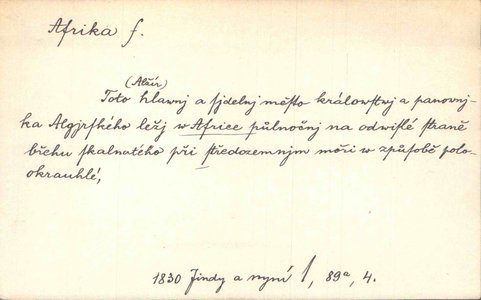 Afrika f.
(Alžír)
Toto hlawnj a sjdelnj město králowstwj a panownj-
ka Algjrského ležj w Africe půlnočnj na odwislé straně
břehu skalnatého při středozemnjm moři w způsobě polo-
okrauhlé,
1830 Jindy a nynj 1, 89a, 4.